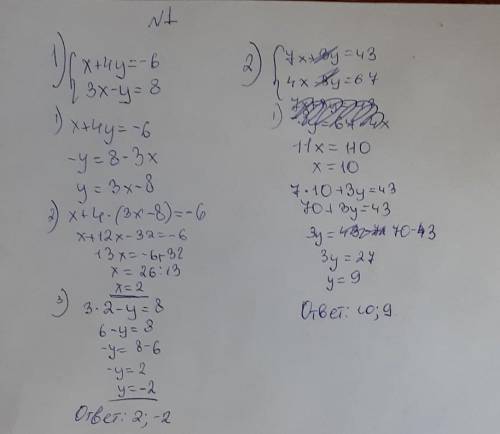 №1
1) { x+4y=-6
3x-y=8
1) x+4y=-6
-y=8-3x
y=3x-8
2) x+4·(3x-8)=-6
x+12x-32=-6
13x=-6+32
x=26:13
x=2
3) 3·2-y=8
6-y=8
-y=8-6
-y=2
y=-2
Ответ: 2; -2
2) { 7x+3y=43
4x-3y=67
1)
11x=110
x=10
7·10+3y=43
70+3y=43
3y=70-43
3y=27
y=9
Ответ: 10; 9